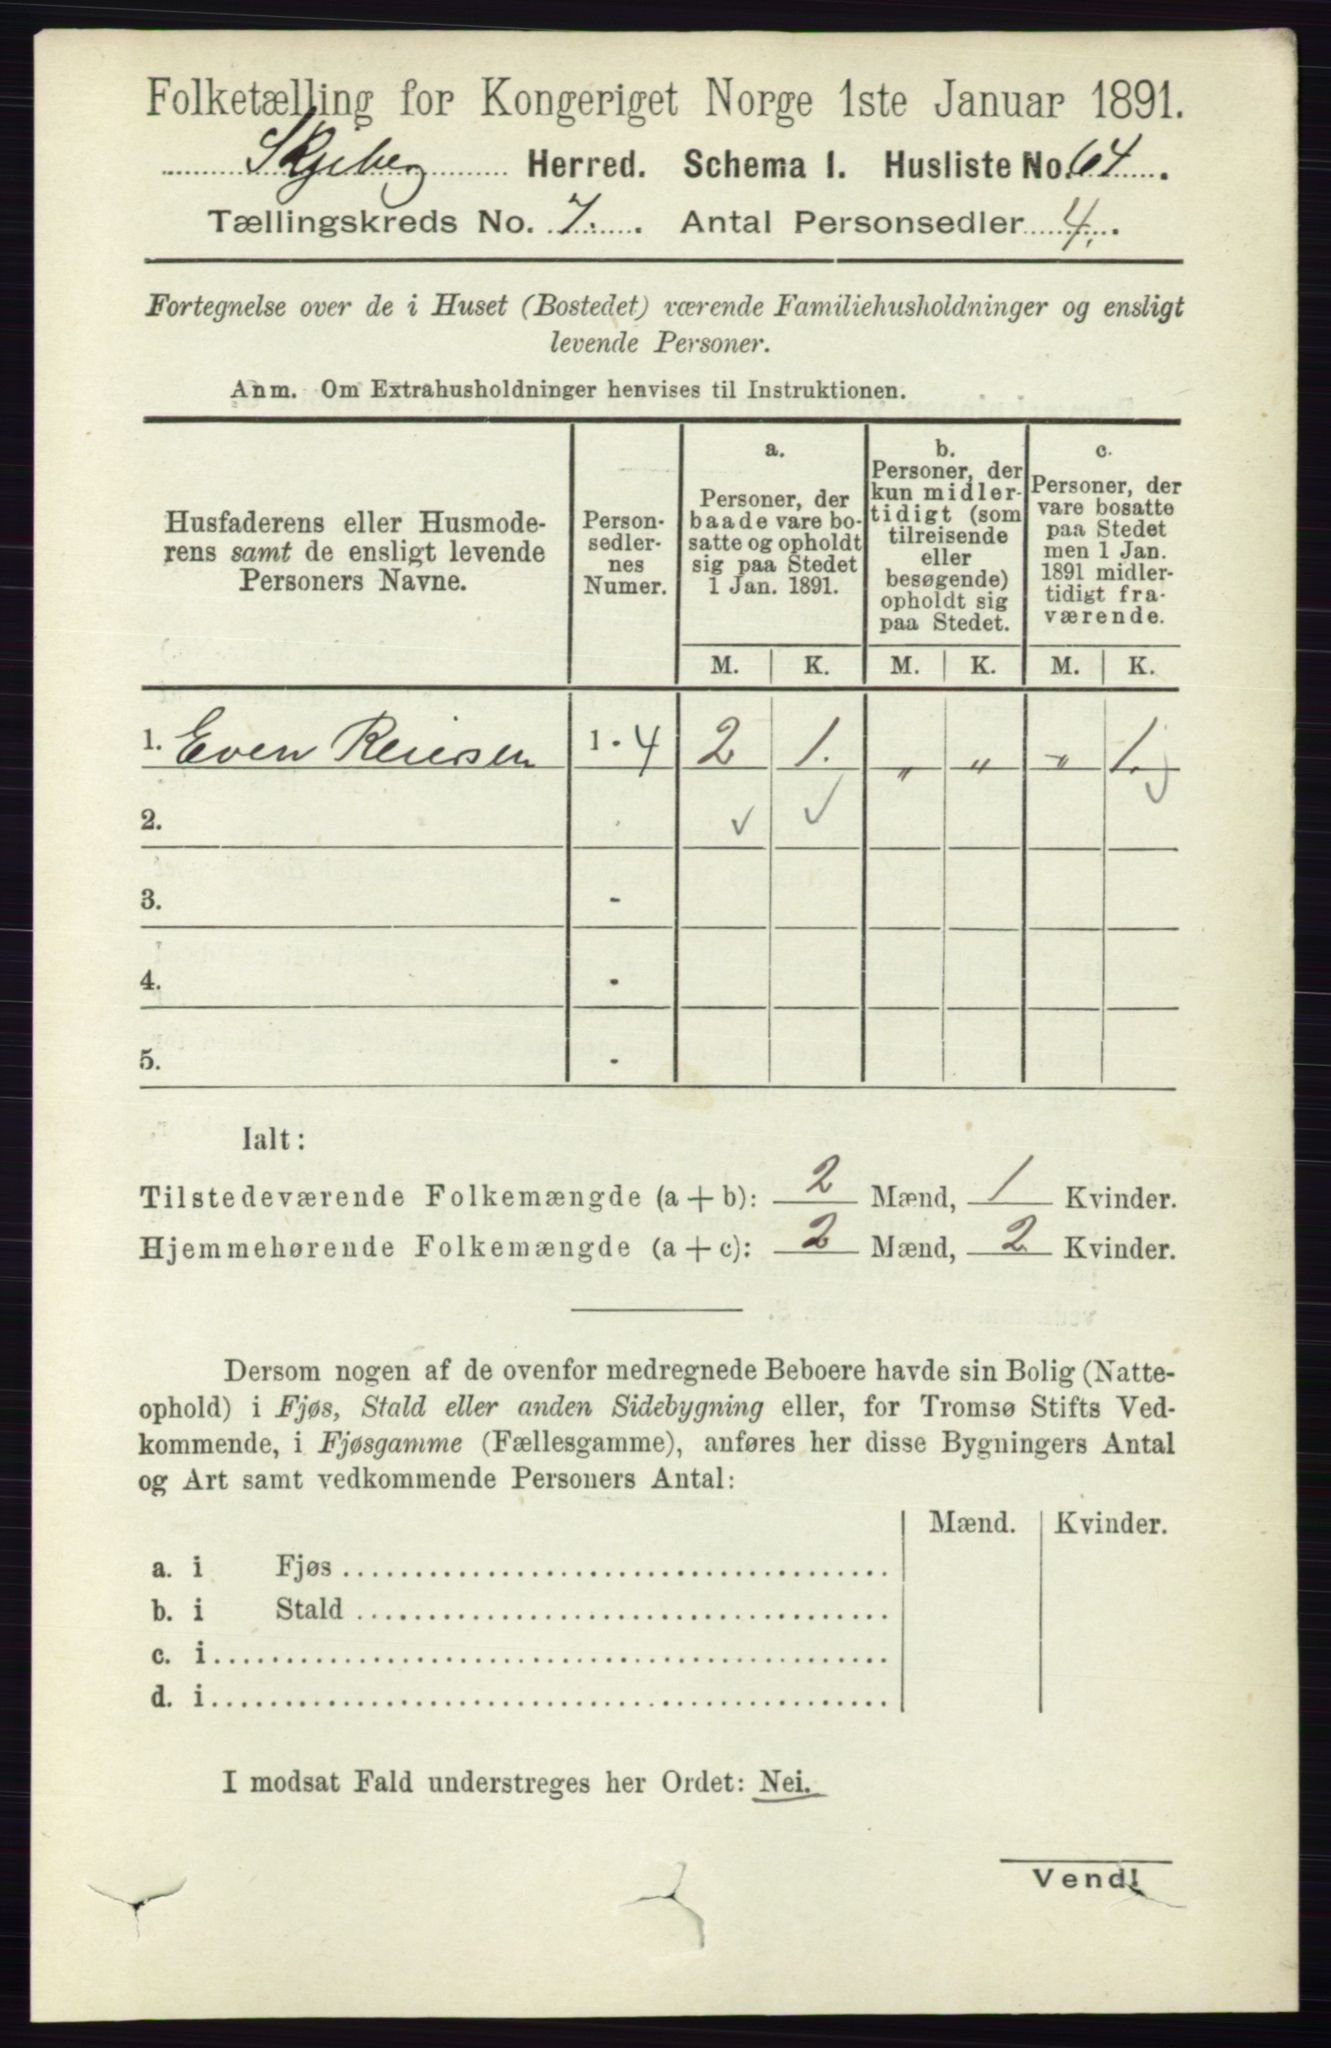 Folketælling for Kongeriget Norge 1ste Januar 1891.
Skjeberg Herred. Schema I. Husliste No. 64.
Tællingskreds No. 7. Antal Personsedler 4.
Fortegnelse over de i Huset (Bostedet) værende Familiehusholdninger og ensligt
levende Personer.
Anm. Om Extrahusholdninger henvises til Instruktionen.
Husfaderens eller Husmode-
rens samt de ensligt levende
Personers Navne.
Person-
sedler-
nes
Numer.
a.
Personer, der
baade vare bo-
satte og opholdt
sig paa Stedet
1 Jan. 1891.
b.
Personer, der
kun midler-
tidigt (som
tilreisende
eller
besøgende)
opholdt sig
paa Stedet.
c.
Personer, der
vare bosatte
paa Stedet
men 1 Jan.
1891 midler-
tidigt fra-
værende.
M. K. M. K. M. K.
1. Even Reiersen 1 - 4 2 1. „ „ „ 1.
2. ✓ ✓
3. -
4. -
5. -
Ialt:
Tilstedeværende Folkemængde (a + b): 2 Mænd, 1 Kvinder.
Hjemmehørende Folkemængde (a + c): 2 Mænd, 2 Kvinder.
Dersom nogen af de ovenfor medregnede Beboere havde sin Bolig (Natte-
ophold) i Fjøs, Stald eller anden Sidebygning eller, for Tromsø Stifts Ved-
kommende, i Fjøsgamme (Fællesgamme), anføres her disse Bygningers Antal
og Art samt vedkommende Personers Antal:
Mænd. Kvinder.
a. i Fjøs
b. i Stald
c. i
d. i
I modsat Fald understreges her Ordet: Nei.
Vend!